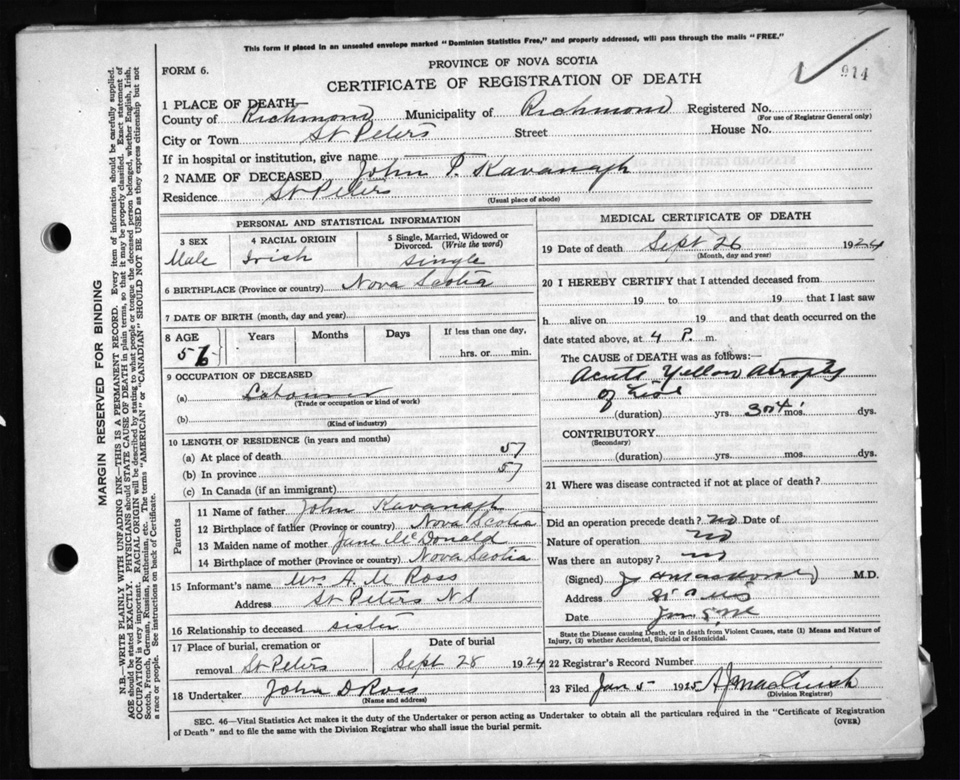 This form if placed in an unsealed envelope marked "Dominion Statistics Free," and properly addressed, will pass through the mails "FREE."
FORM 6.
PROVINCE OF NOVA SCOTIA
CERTIFICATE OF REGISTRATION OF DEATH
914
1 PLACE OF DEATH—
County of Richmond Municipality of Richmond Registered No.
(For use of Registrar General only)
City or Town St Peters Street House No.
If in hospital or institution, give name
2 NAME OF DECEASED John P. Kavanagh
Residence St Peters
(Usual place of abode)
PERSONAL AND STATISTICAL INFORMATION
3 SEX 4 RACIAL ORIGIN 5 Single, Married, Widowed or Divorced. (Write the word)
Male Irish single
6 BIRTHPLACE (Province or country) Nova Scotia
7 DATE OF BIRTH (month, day and year)
8 AGE Years Months Days If less than one day,
hrs. or min.
9 OCCUPATION OF DECEASED
(a) Labourer
(Trade or occupation or kind of work)
(b)
(Kind of industry)
10 LENGTH OF RESIDENCE (in years and months)
(a) At place of death 57
(b) In province 57
(c) In Canada (if an immigrant)
Parents
11 Name of father John Kavanagh
12 Birthplace of father (Province or country) Nova Scotia
13 Maiden name of mother Jane McDonald
14 Birthplace of mother (Province or country) Nova Scotia
15 Informant's name Mrs A. M Ross
Address St Peters N S
16 Relationship to deceased sister
17 Place of burial, cremation or removal St Peters
Date of burial Sept 28 1924
18 Undertaker John D Ross
(Name and address)
MEDICAL CERTIFICATE OF DEATH
19 Date of death Sept 26 1924
(Month, day and year)
20 I HEREBY CERTIFY that I attended deceased from
19 to 19 that I last saw
h alive on 19 and that death occurred on the
date stated above, at 4 P. m.
The CAUSE OF DEATH was as follows:—
Acute Yellow Atrophy
of
(duration) yrs. mos. dys.
CONTRIBUTORY
(Secondary)
(duration) yrs. mos. dys.
21 Where was disease contracted if not at place of death?
Did an operation precede death? no Date of
Nature of operation no
Was there an autopsy? no
(Signed) M.D.
Address
Date Jan
State the Disease causing Death, or in death from Violent Causes, state (1) Means and Nature of
Injury, (2) whether Accidental, Suicidal or Homicidal.
22 Registrar's Record Number
23 Filed Jan 5 1925
(Division Registrar)
SEC. 46—Vital Statistics Act makes it the duty of the Undertaker or person acting as Undertaker to obtain all the particulars required in the "Certificate of Registration
of Death" and to file the same with the Division Registrar who shall issue the burial permit.
(OVER)
MARGIN RESERVED FOR BINDING
N.B.—WRITE PLAINLY WITH UNFADING INK—THIS IS A PERMANENT RECORD. Every item of information should be carefully supplied.
AGE should be stated EXACTLY. PHYSICIANS should STATE CAUSE OF DEATH in plain terms, so that it may be properly classified. Exact statement of
OCCUPATION is very important. RACIAL ORIGIN will be described by stating to what people or tongue the deceased person belonged, whether English, Irish,
Scotch, French, German, Russian, Ruthenian, etc. The terms "AMERICAN" or "CANADIAN" SHOULD NOT BE USED as they express citizenship but not
a race or people. See instructions on back of Certificate.